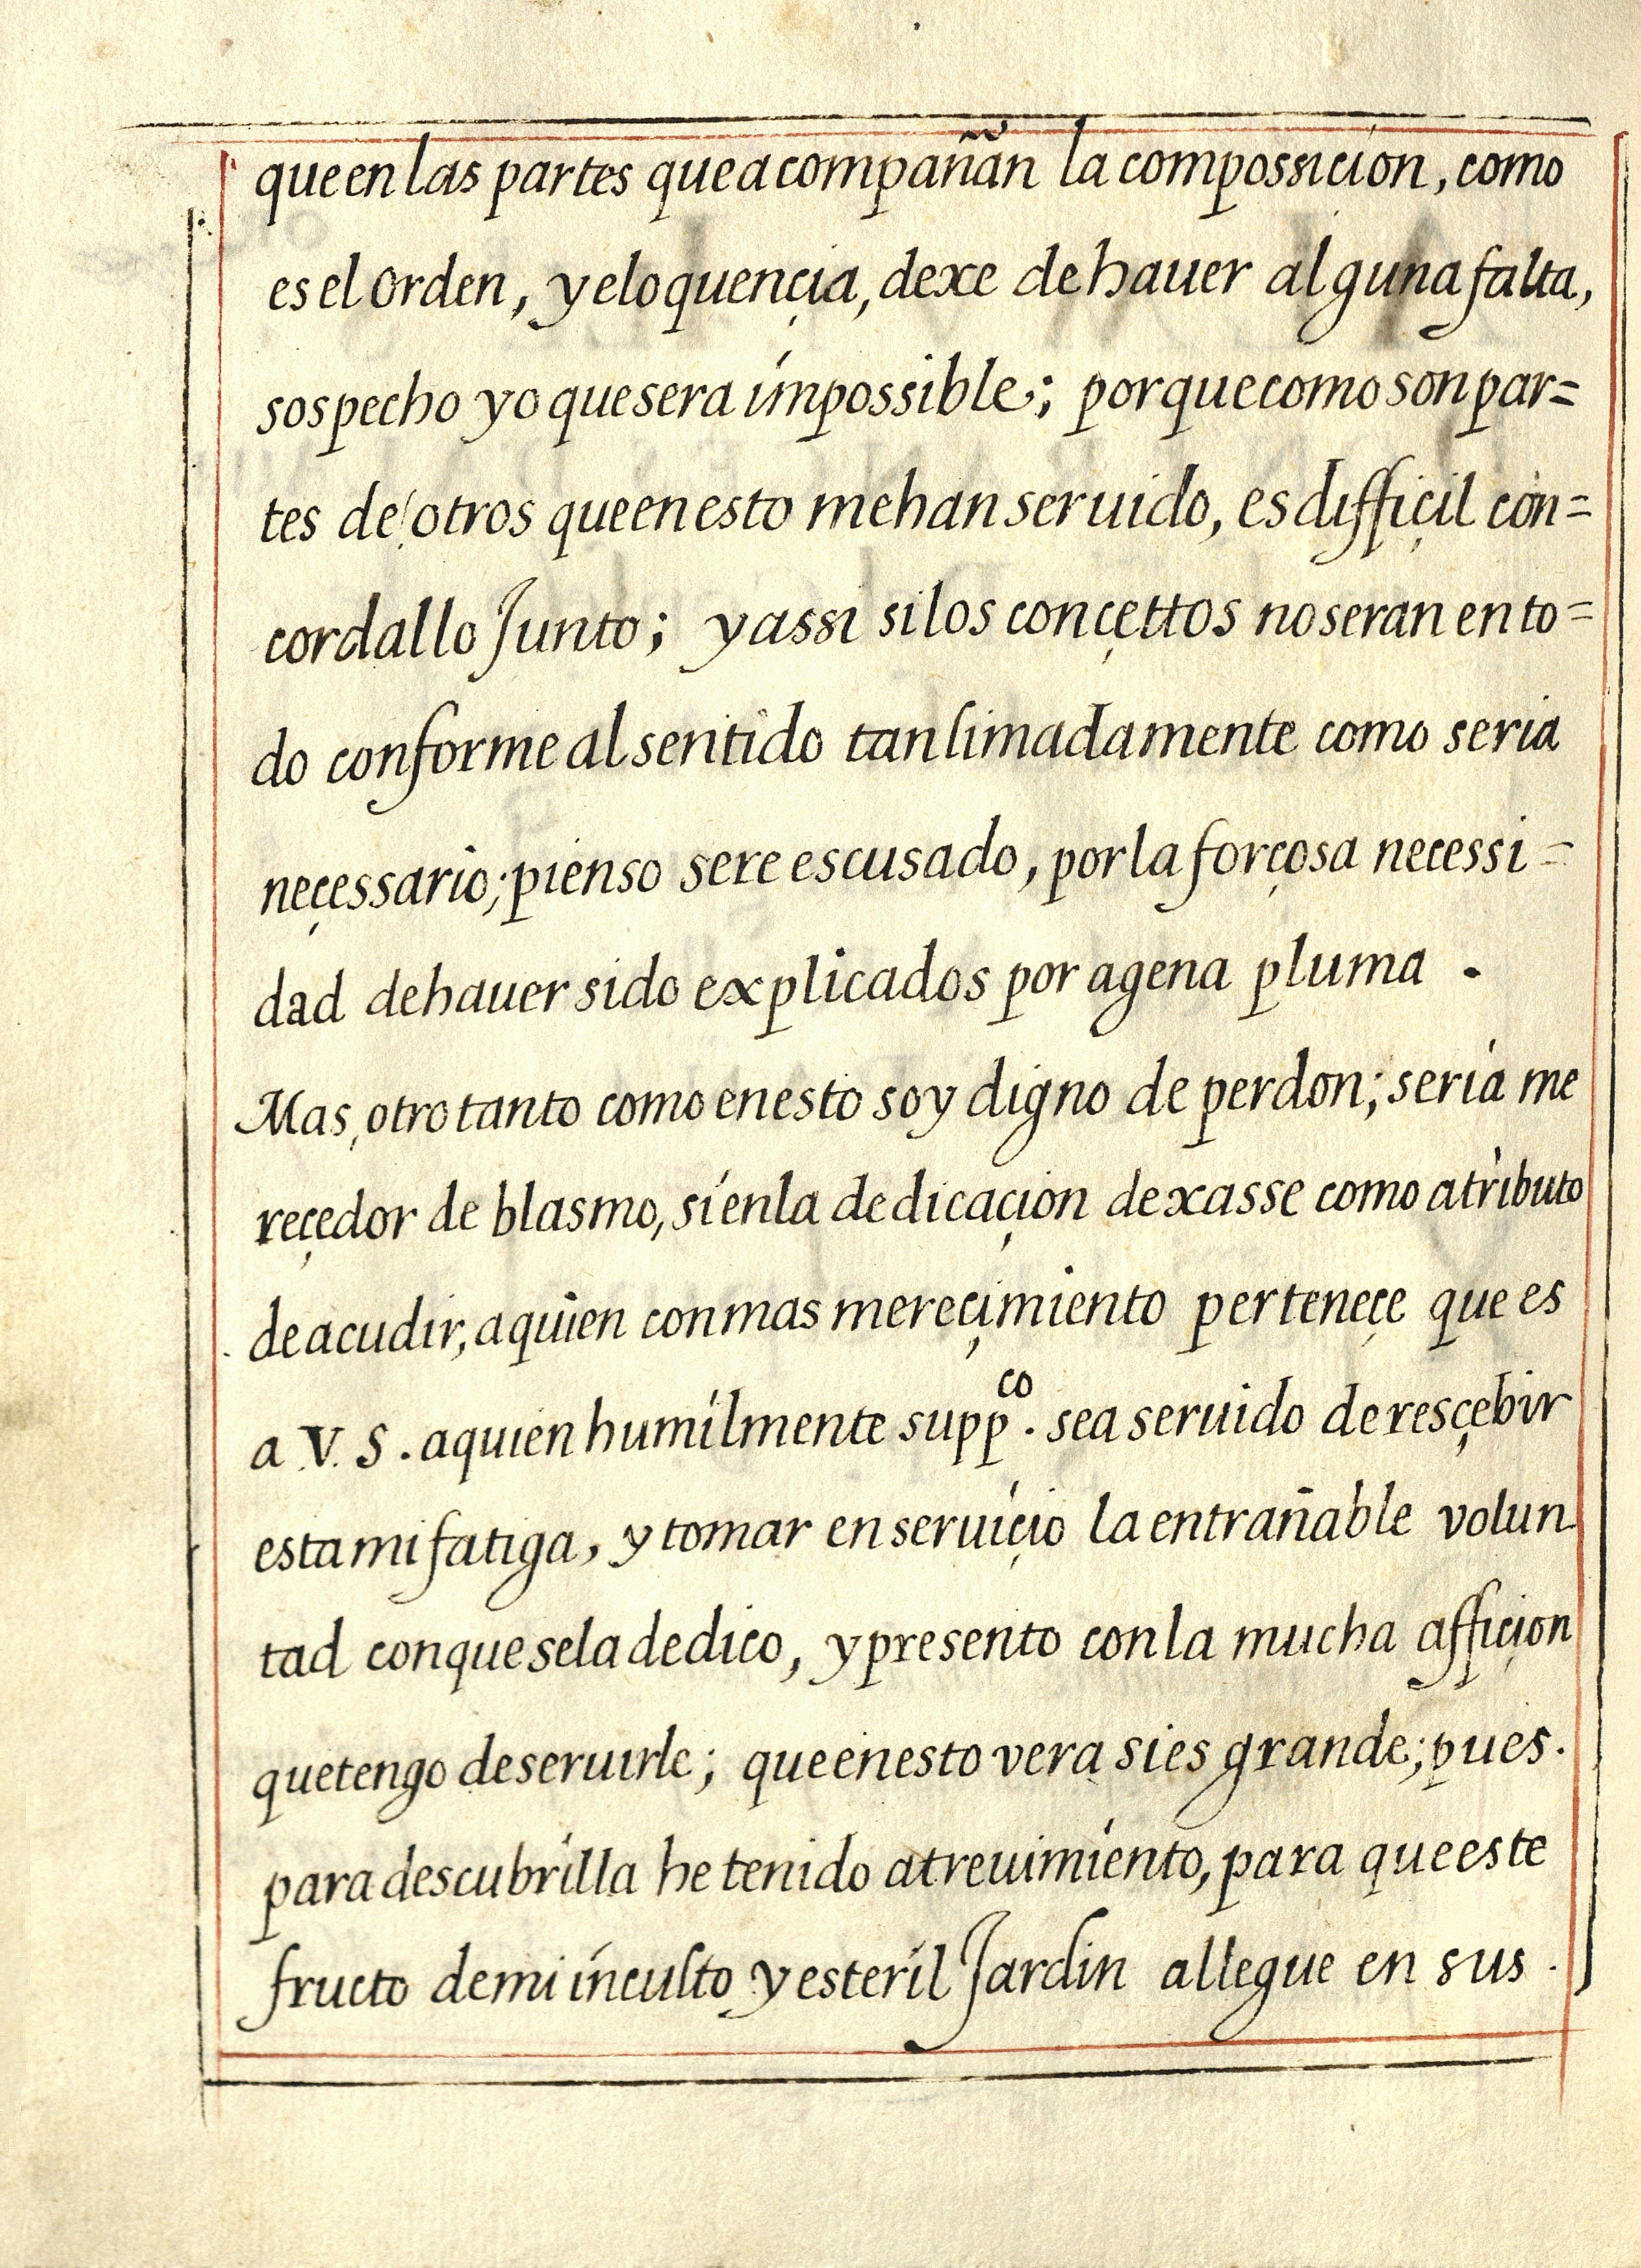 que en las partes que acompañan la compossicion, como
es el orden, y eloquençia, dexe de hauer alguna falta,
sospecho yo que sera impossible; porque como son par=
tes de otros que en esto me han seruido, es diffiçil con=
cordallo Junto; y assi si los conçettos no seran en to=
do conforme al sentido tan limadamente como seria
neçessario; pienso sere escusado, por la forçosa necessi=
dad de hauer sido explicados por agena pluma.
Mas, otro tanto como en esto soy digno de perdon; seria me
reçedor de blasmo, si en la dedicaçion dexasse como atributo
de acudir, a quien con mas mereçimiento perteneçe que es
a V. S. a quien humilmente suppco. sea seruido de resçebir
esta mi fatiga, y tomar en seruiçio la entrañable volun
tad con que se la dedico, y presento con la mucha affiçion
que tengo de seruirle; que en esto vera si es grande; pues.
para descubrilla he tenido atreuimiento, para que este
fructo de mi inculto y esteril Jardin allegue en sus.